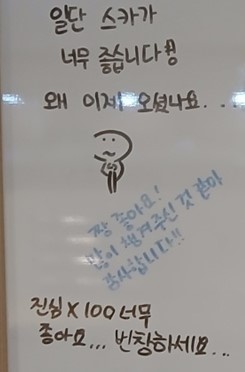 일단 스카가
너무 좋습니다!!
왜 이제 오셨나요...
짱 좋아요!
많이 챙겨주신 것
감사합니다!!
진심 X 100 너무
좋아요... 번창하세요...